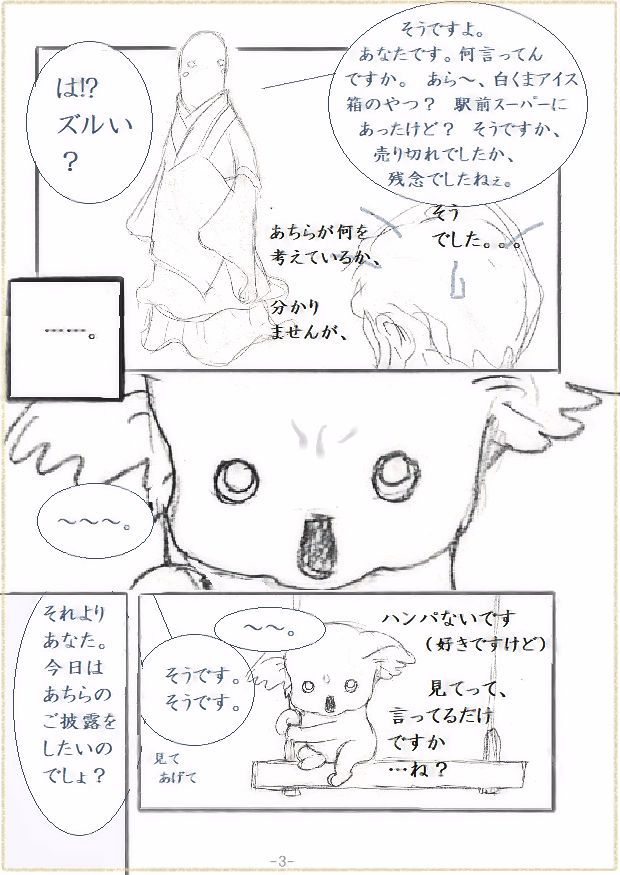 そうですよ。
あなたです。何言ってん
ですか。 あら～、白くまアイス
箱のやつ？ 駅前スーパーに
あったけど？ そうですか、
売り切れでしたか、
残念でしたねぇ。
は!?
ズルい
？
そう
でした。。。
あちらが何を
考えているか、
分かり
ませんが、
……。
～～～。
ハンパないです
（好きですけど）
～～。
そうです。
そうです。
見て
あげて
見てって、
言ってるだけ
ですか
…ね？
それより
あなた。
今日は
あちらの
ご披露を
したいの
でしょ？
-3-